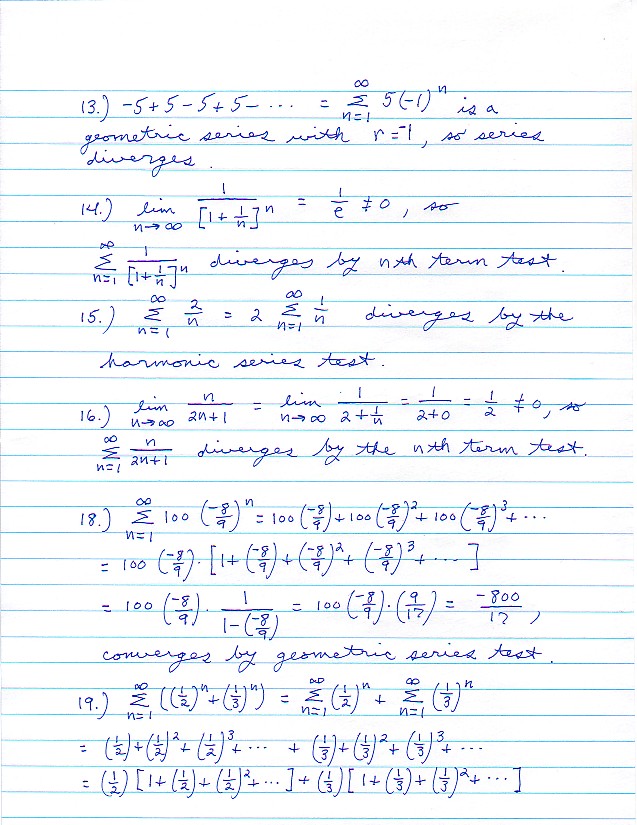 13.) -5+5-5+5-··· = ∞Σn=1 5(-1)^n is a
geometric series with r=-1, so series
diverges.
14.) lim n→∞ 1/[1+1/n]^n = 1/e ≠ 0, so
∞Σn=1 1/[1+1/n]^n diverges by nth term test.
15.) ∞Σn=1 2/n = 2 ∞Σn=1 1/n diverges by the
harmonic series test.
16.) lim n→∞ n/2n+1 = lim n→∞ 1/2+1/n = 1/2+0 = 1/2 ≠ 0, so
∞Σn=1 n/2n+1 diverges by the nth term test.
18.) ∞Σn=1 100(-8/9)^n = 100(-8/9)+100(-8/9)^2+100(-8/9)^3+···
= 100(-8/9)·[1+(-8/9)+(-8/9)^2+(-8/9)^3+···]
= 100(-8/9)·1/1-(-8/9) = 100(-8/9)·(9/17) = -800/17,
converges by geometric series test.
19.) ∞Σn=1 ((1/2)^n+(1/3)^n) = ∞Σn=1 (1/2)^n + ∞Σn=1 (1/3)^n
= (1/2)+(1/2)^2+(1/2)^3+··· + (1/3)+(1/3)^2+(1/3)^3+···
= (1/2)[1+(1/2)+(1/2)^2+···]+(1/3)[1+(1/3)+(1/3)^2+···]